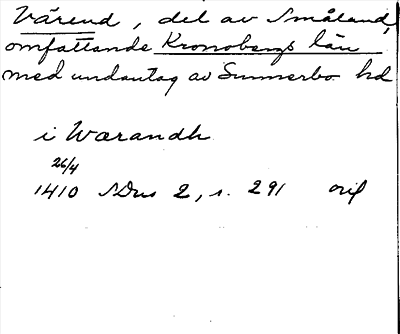 Värend, del av Småland,
omfattande Kronobergs län
med undantag av Sunnerbo hd
i Wærandh
26/4
1410 SDns 2, s. 291 orig